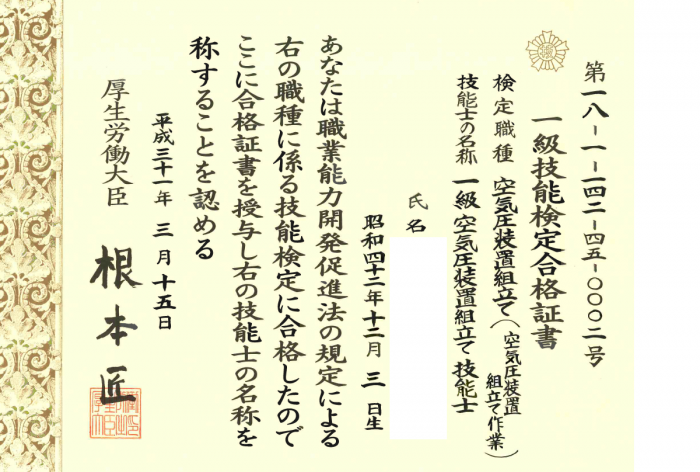 第一八-一-一四二-四五-〇〇〇二号
一級技能検定合格証書
検定職種 空気圧装置組立て(空気圧装置組立て作業)
技能士の名称 一級空気圧装置組立て技能士
氏名
昭和四十二年十二月三日生
あなたは職業能力開発促進法の規定による
右の職種に係る技能検定に合格したので
ここに合格証書を授与し右の技能士の名称を
称することを認める
平成三十一年三月十五日
厚生労働大臣 根本匠